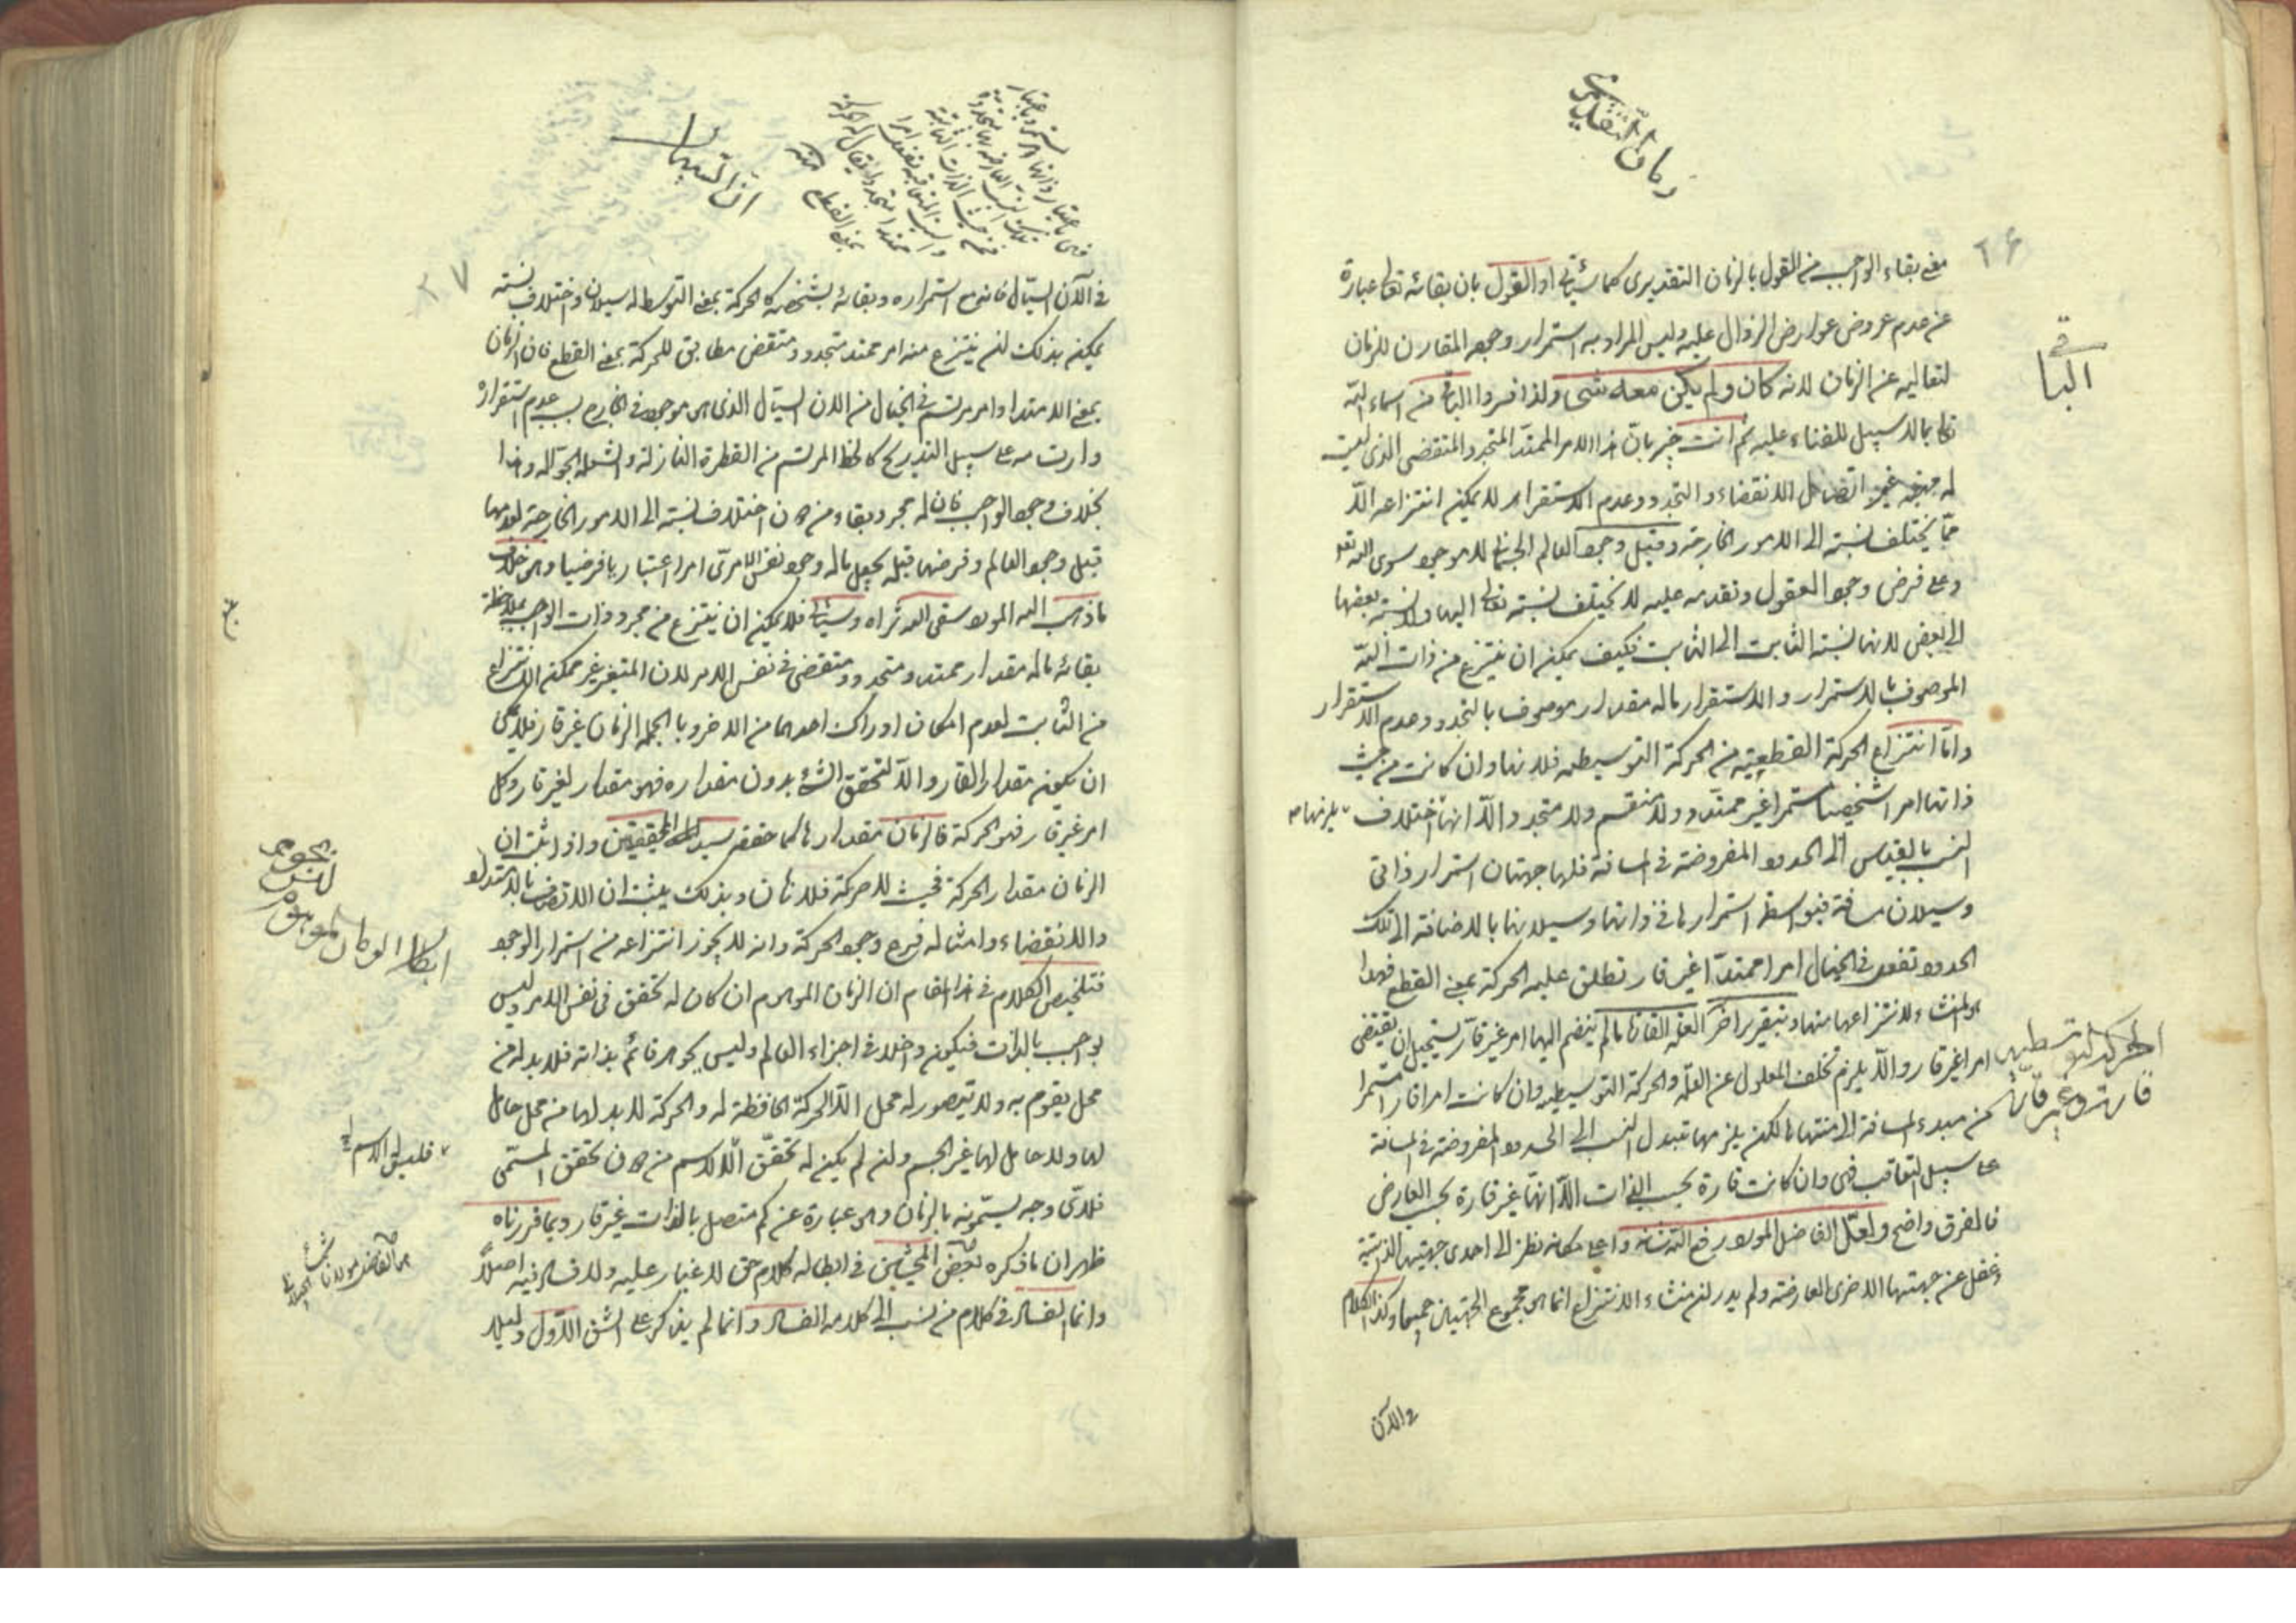 زمان التقديری
۲۶
معنى بقاء الواجب من القول بالزمان التقديرى كما سيأتى او القول بان بقائه تعالى عبارة
عن عدم عروض عوارض الزوال عليه وليس المراد به استمرار وجوه المقارن للزمان
لتعاليه عن الزمان لانه كان ولم يكن معه شئ ولذا فسروا الباقى من اسماء الله
الباقى
تعالى بالا سبيل للفناء عليه ثم انت خبير بان هذا الامر الممتد المتجدد المتقضى الذى ليست
له جهة غير اتصال الانقضاء والتجدد وعدم الاستقرار لا يمكن انتزاعه الا
مما يختلف نسبته الى الامور الخارجة وقبل وجود العالم الجسمانى لا موجود سوى الله تعالى
وعلى فرض وجود العقول وتقدمه عليه لا يختلف نسبته تعالى اليها ولا نسبة بعضها
الى بعض لانها نسبة الثابت الى الثابت فكيف يمكن ان ينتزع من ذات الله
الموصوف بالاستمرار والاستقرار ماله مقدار موصوف بالتجدد وعدم الاستقرار
واما انتزاع الحركة القطعية من الحركة التوسطية فلانها وان كانت من حيث
ذاتها امرا شخصيا مستمرا غير ممتد ولا منقسم ولا متجدد الا انها يلزمها اختلاف
النسب بالقياس الى الحدود المفروضة فى المسافة فلها جهتان استمرار ذاتى
وسيلان مسافة فبواسطة استمرارها فى ذواتها وسيلانها بالاضافة الى تلك
الحدود تفعل فى الخيال امرا ممتدا غير قار تطلق عليه الحركة بمعنى القطع فهذا
هو المنشاء لانتزاعها منها وبتقرير اخر العلة القارة ما لم ينضم اليها امر غير قار يستحيل ان يقتضى
امرا غير قار والا يلزم تخلف المعلول عن العلة والحركة التوسطية وان كانت امرا قارا مستمرا
الحركة التوسطية
قارة وغير قارة
من مبدء المسافة الى منتهاها لكن يلزمها تبدل النسب الى الحدود المفروضة فى المسافة
على سبيل التعاقب فهى وان كانت قارة بحسب الذات الا انها غير قارة بحسب العارض
فالفرق واضح ولعل الفاضل المولى رفع الله شانه واعلى مكانه نظر الى احدى جهتيها الذاتية
وغفل عن جهتها الاخرى العارضة ولم يدر ان منشاء الانتزاع انما هى مجموع الجهتين جميعا وكذا الكلام
فى الآن
ان السيال
۲۷
فى الآن السيال فانه مع استمراره وبقائه بشخصه كالحركة بمعنى التوسط له سيلان واختلاف نسبته
يمكن بذلك ان ينتزع منه امر ممتد متجدد ومتقض مطابق للحركة بمعنى القطع فان الزمان
بمعنى الامتداد امر مرتسم فى الخيال من الان السيال الذى هو موجود فى الخارج بسبب عدم استقراره
وارتسامه على سبيل التدريج كالخط المرتسم من القطرة النازلة والشعلة الجوالة وهذا
بخلاف وجود الواجب فان له مجرد بقاء من دون اختلاف نسبته الى الامور الخارجة لعدمها
قبل وجود العالم وفرضها قبله يجعل ماله وجود نفس الامرى امرا اعتباريا فرضيا وهو خلاف
ما ذهب اليه المولى سقى الله ثراه وسيأتى فلا يمكن ان ينتزع من مجرد ذات الواجب بملاحظة
بقائه ماله مقدار ممتد ومتجدد ومتقضى فى نفس الامر لان المتغير غير ممكن الانتزاع
من الثابت لعدم امكان ادراك احدهما من الاخر وبالجملة الزمان غير قار فلا يمكن
ان يكون مقدارا لقار والا لتحقق الشئ بدون مقداره فهو مقدار لغير قار وكل
امر غير قار فهو الحركة فالزمان مقدارها كما حققه سيد المحققين واذا ثبت ان
الزمان مقدار الحركة فحيث لا حركة فلا زمان وبذلك يثبت ان الاتصاف بالامتداد
والانقضاء وامثاله فرع وجود الحركة وانه لا يجوز انتزاعه من استمرار الوجود
ابطال الزمان الموهوم
فتلخيص الكلام فى هذا المقام ان الزمان الموهوم ان كان له تحقق فى نفس الامر وليس
بواجب بالذات فيكون داخلا فى اجزاء العالم وليس بجوهر قائم بذاته فلا بد له من
محل يقوم به ولا يتصور له محل الا الحركة الحافظة له والحركة لا بد لها من محل حامل
لها ولا حامل لها غير الجسم وان لم يكن له تحقق الا الاسم من دون تحقق المسمى
فلاى وجه يسمونه بالزمان وهو عبارة عن كم متصل بالذات غير قار وبما قررناه
ظهر ان ما ذكره بعض المحشين فى ابطاله كلام حق لا غبار عليه ولا فساد فيه اصلا
وانما الفساد فى كلام من نسب الى كلامه الفساد وانما لم يذكر على الشق الاول دليلا